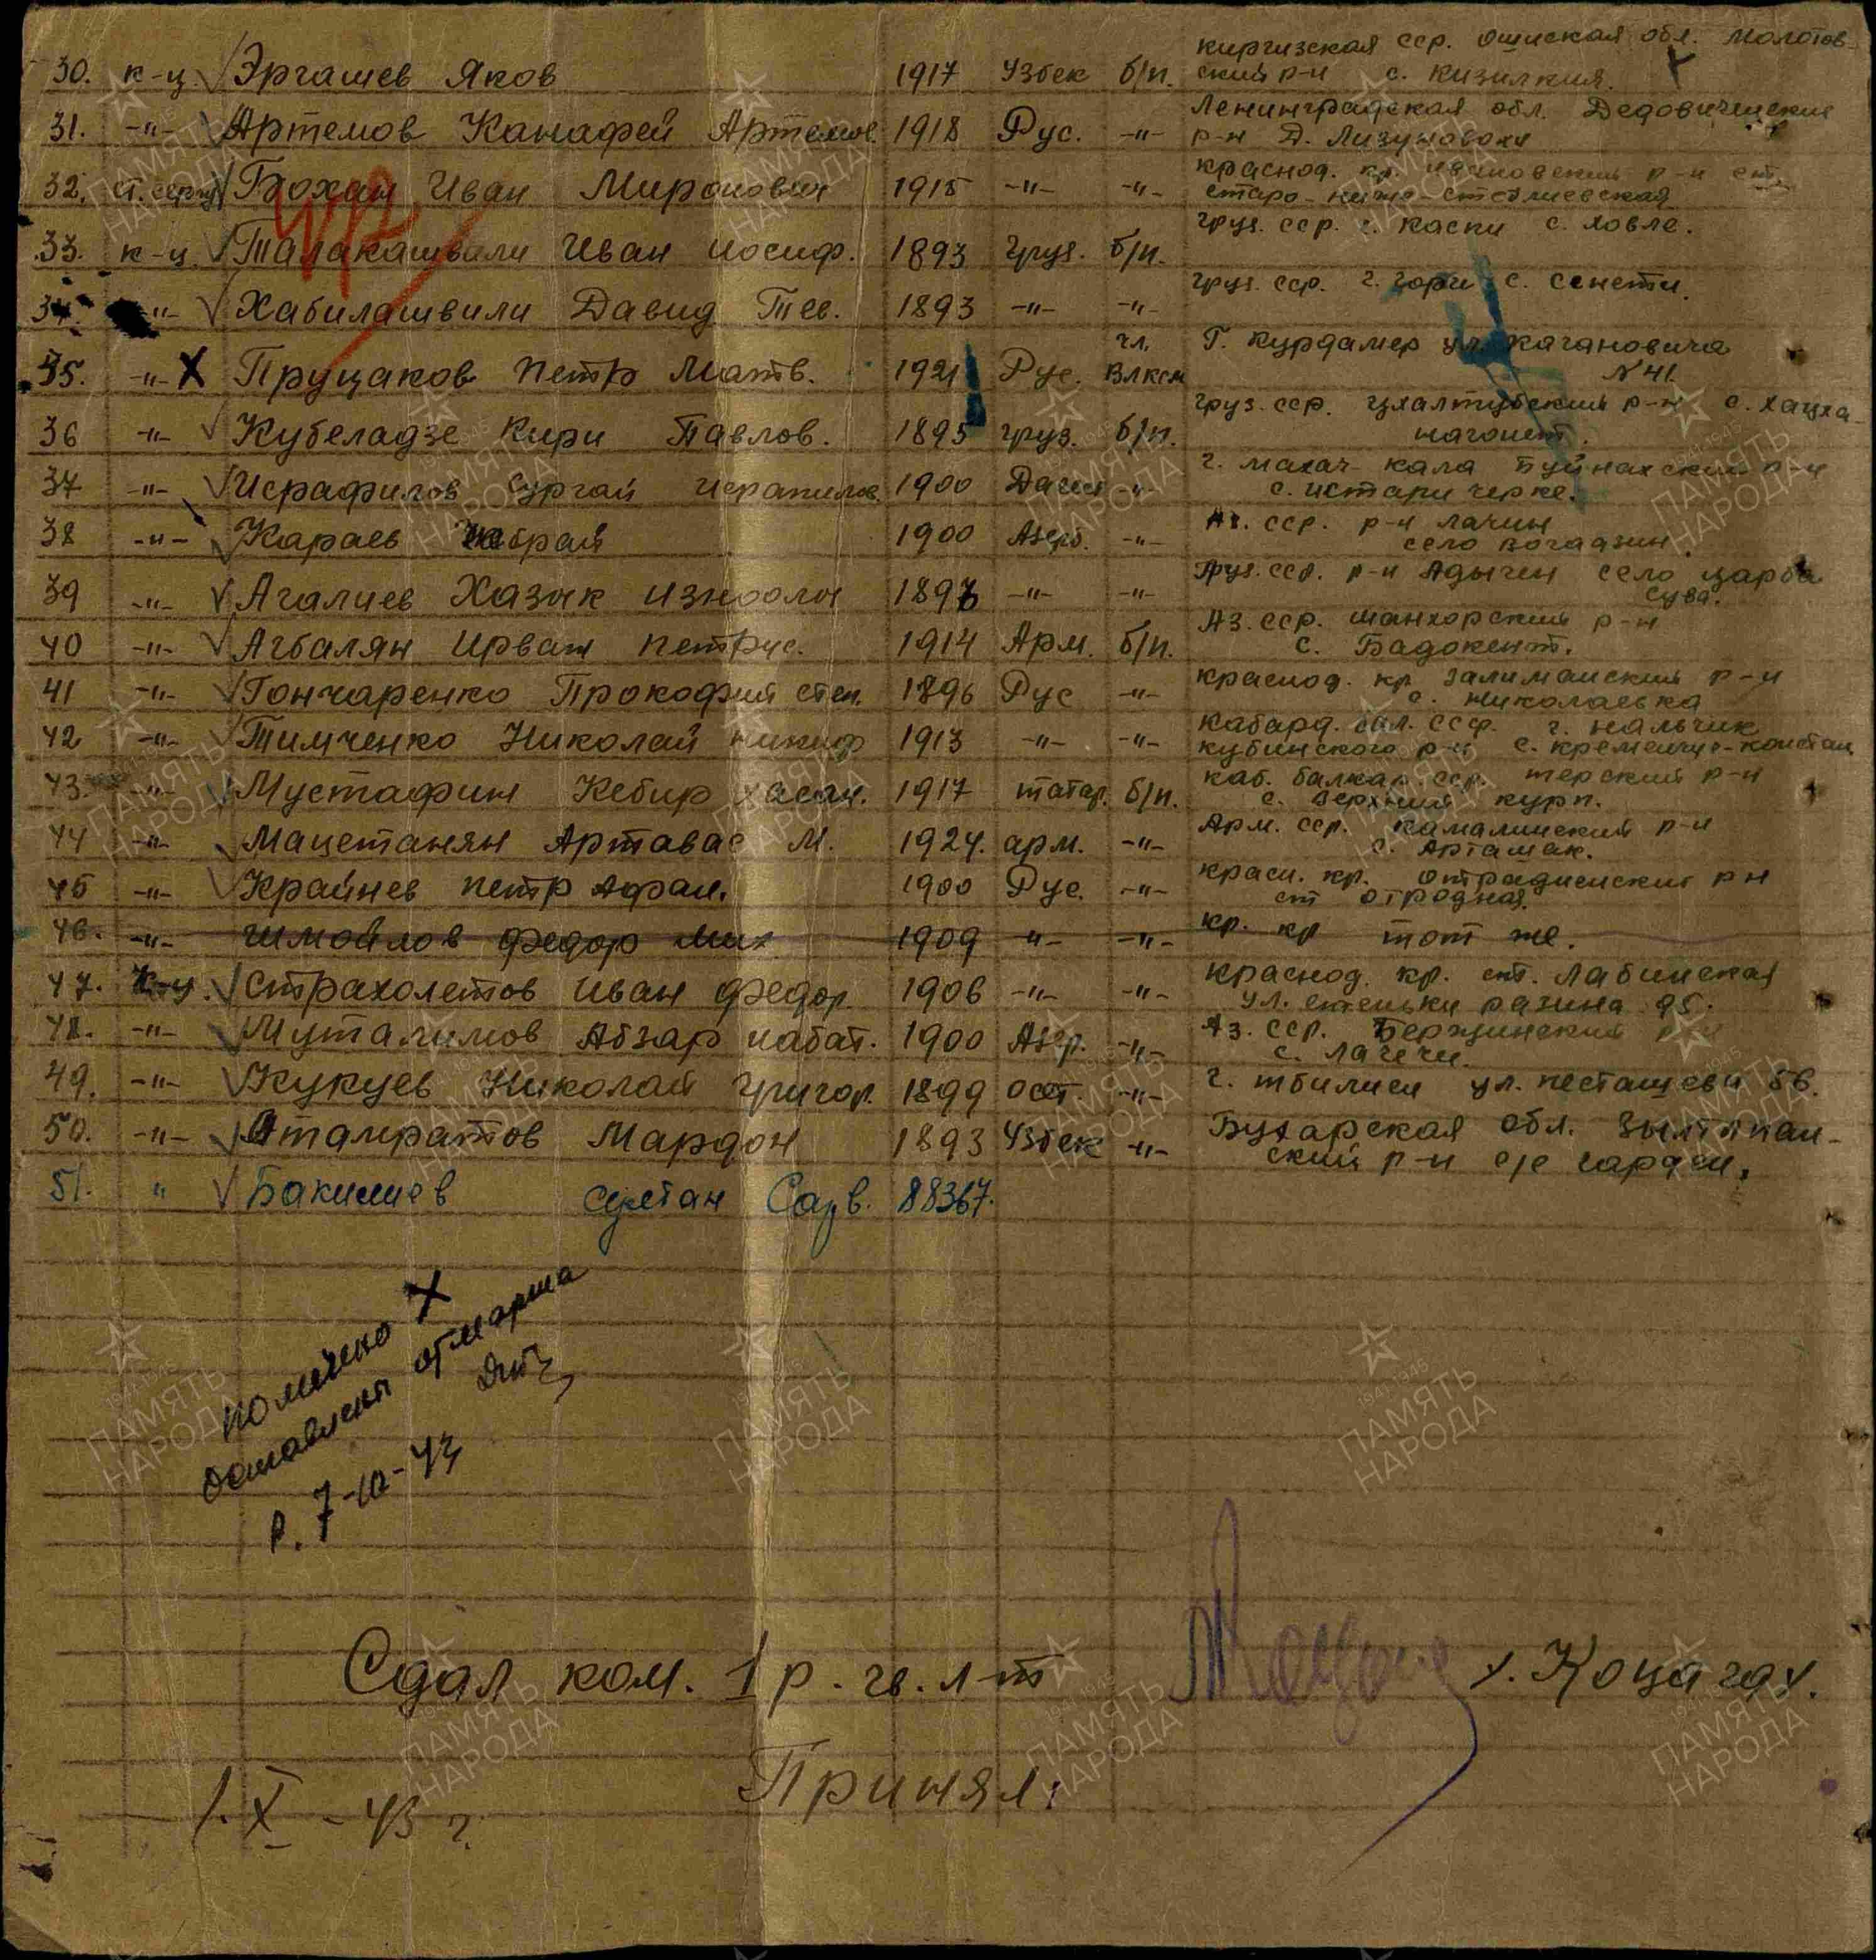 30. к-ц. Эргашев Яков 1917 Узбек б/п. киргизская сср. ошиская обл. Молотов-
ский р-н с. Кизилкия.
31. -"- Артемов Канафей Артемов. 1918 Рус. -"- Ленинградская обл. Дедовический
р-н Д. Лизуновока
32. ст. серж Бохан Иван Миронович 1915 -"- -"- краснод. кр. ивановский р-н ст.
старо-ниже-стеблиевская
33. к-ц. Талакашвали Иван Иосиф. 1893 Груз. б/п. груз. сср. г. Каспи с. ховле.
34. -"- Хабилашвили Давид Тев. 1893 -"- -"- груз. сср. г. гори с. сенети.
35. -"- X Пруцаков Петр Матв. 1921 Рус. чл. Влксм Г. Курдамер ул. Кагановича
N 41.
36 -"- Кубеладзе Кири Павлов. 1895 груз. б/п. груз. сср. цхалтубский р-н с. хацха-
37 -"- Исрафилов Сургай Исрапилов. 1900 Дагест -"- г. махач-кала Буйнахский р-н
с. истари черке.
38 -"- Караев 1900 Азерб. -"- Аз. сср. р-н лачин
село
39 -"- Агалиев Хазак 1897 -"- -"- Груз. сср. р-н Адыген село царба
сува.
40 -"- Агбалян Ирван Петрус. 1914 Арм. б/п. Аз. сср. шанхорский р-н
с. Бадокент.
41 -"- Гончаренко Прокофий степ. 1896 Рус -"- краснод. кр залиманский р-н
с. николаевка
42 -"- Тимченко Николай никиф 1913 -"- -"- кабард. бал. ССР. г. нальчик
кубинского р-н с.
43. -"- Мустафин Кебир хасан. 1917 татар. б/п. каб. балкар. сср. терский р-н
с. верхний курп.
44 -"- Мацетанян Артавас М. 1924. арм. -"- Арм. сср. камалинский р-н
с. Арташак.
45 -"- Крайнев петр Афан. 1900 Рус. -"- красн. кр. отрадненский рн
ст отродная.
46. -"- Шмойлов федор Мих 1909 -"- -"- кр. кр тот же.
47. к-ц. Страхолетов Иван Федор. 1906 -"- -"- краснод. кр. ст. лабинская
ул. стеньки разина 95.
48. -"- Муталимов Абзар набат. 1900 Азер. -"- Аз. сср. р-н
с. Лагечи.
49. -"- Кукуев Николай григор. 1899 осет. -"- г. тбилиси ул. 56.
50. -"- Отамратов Мардон 1893 Узбек -"- Бухарская обл.
ский р-н с/с гардеи.
51. " Бакишев султан Сарв. 88367.
помечено X
оставлены от марша
Р. 7-10-43
Сдал ком. 1 р. гв. л-т х. Коцагах.
Принял:
1.X-43 г.